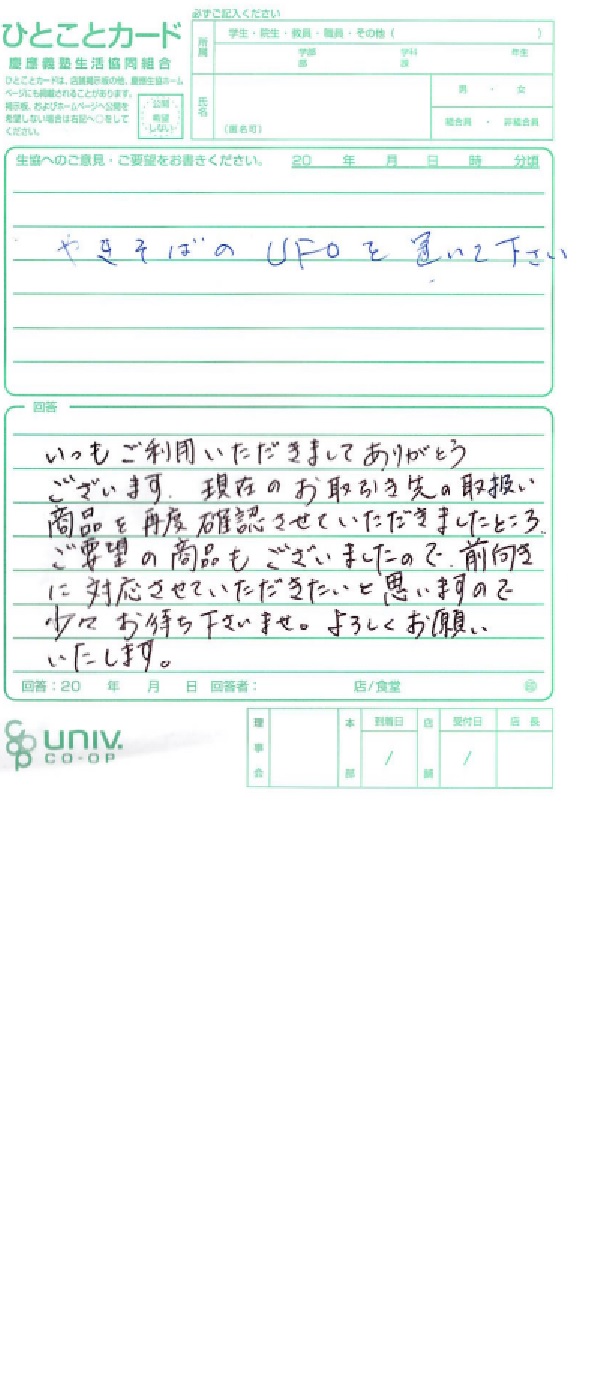 ひとことカード
慶應義塾生活協同組合
ひとことカードは、店舗掲示板の他、慶應生協ホーム
ページにも掲載されることがあります。
掲示板、およびホームページへ公開を
希望しない場合は右記へ○をして
ください。
公開
希望
しない
必ずご記入ください
所属
学生・院生・教員・職員・その他（　　　）
学部　学科　年生
部　課
氏名
（匿名可）
男・女
組合員・非組合員
生協へのご意見・ご要望をお書きください。　20　年　月　日　時　分頃
やきそばの UFOを置いて下さい
回答
いつもご利用いただきましてありがとう
ございます。現在のお取引き先の取扱い
商品を再度確認させていただきましたところ、
ご要望の商品もございましたので、前向き
に対応させていただきたいと思いますので
少々お待ち下さいませ。よろしくお願い
いたします。
回答：20　年　月　日　回答者：　店/食堂　印
理事会　本部　到着日　/　店舗　受付日　/　店長
UNIV.
CO-OP